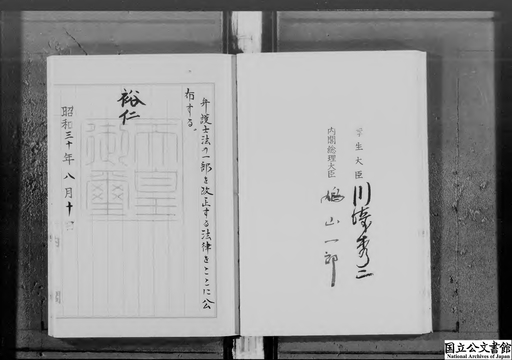 弁護士法の一部を改正する法律をここに公
布する。
裕仁
天皇
御璽
昭和三十年八月十日
厚生大臣
川崎秀二
内閣総理大臣
鳩山一郎
国立公文書館
National Archives of Japan